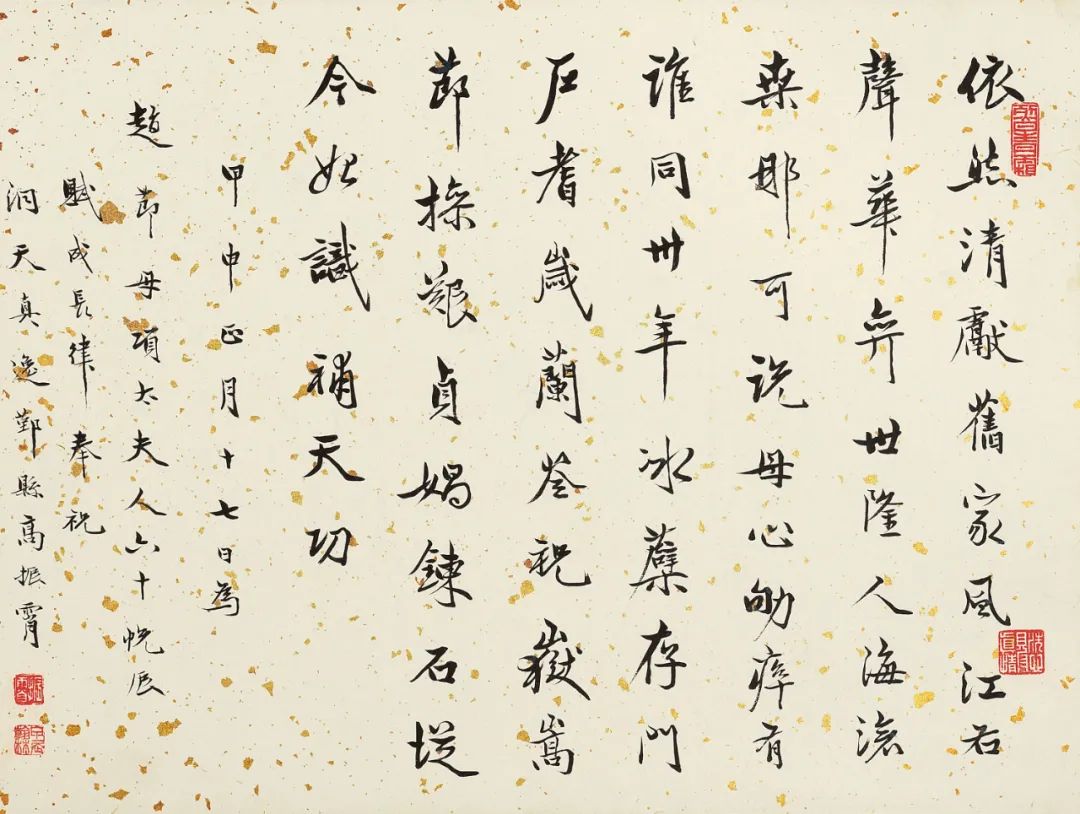 依然清獻舊家風江右
聲華弈世隆人海滄
桑那可說母心劬瘁有
誰同卅年冰蘗存門
戶耆歲蘭荃祝嶽嵩
節操艱貞媧鍊石從
今始識補天功
甲申正月十七日為
趙節母項太夫人六十帨辰
賦成長律奉祝
洞天真逸鄞縣高振霄